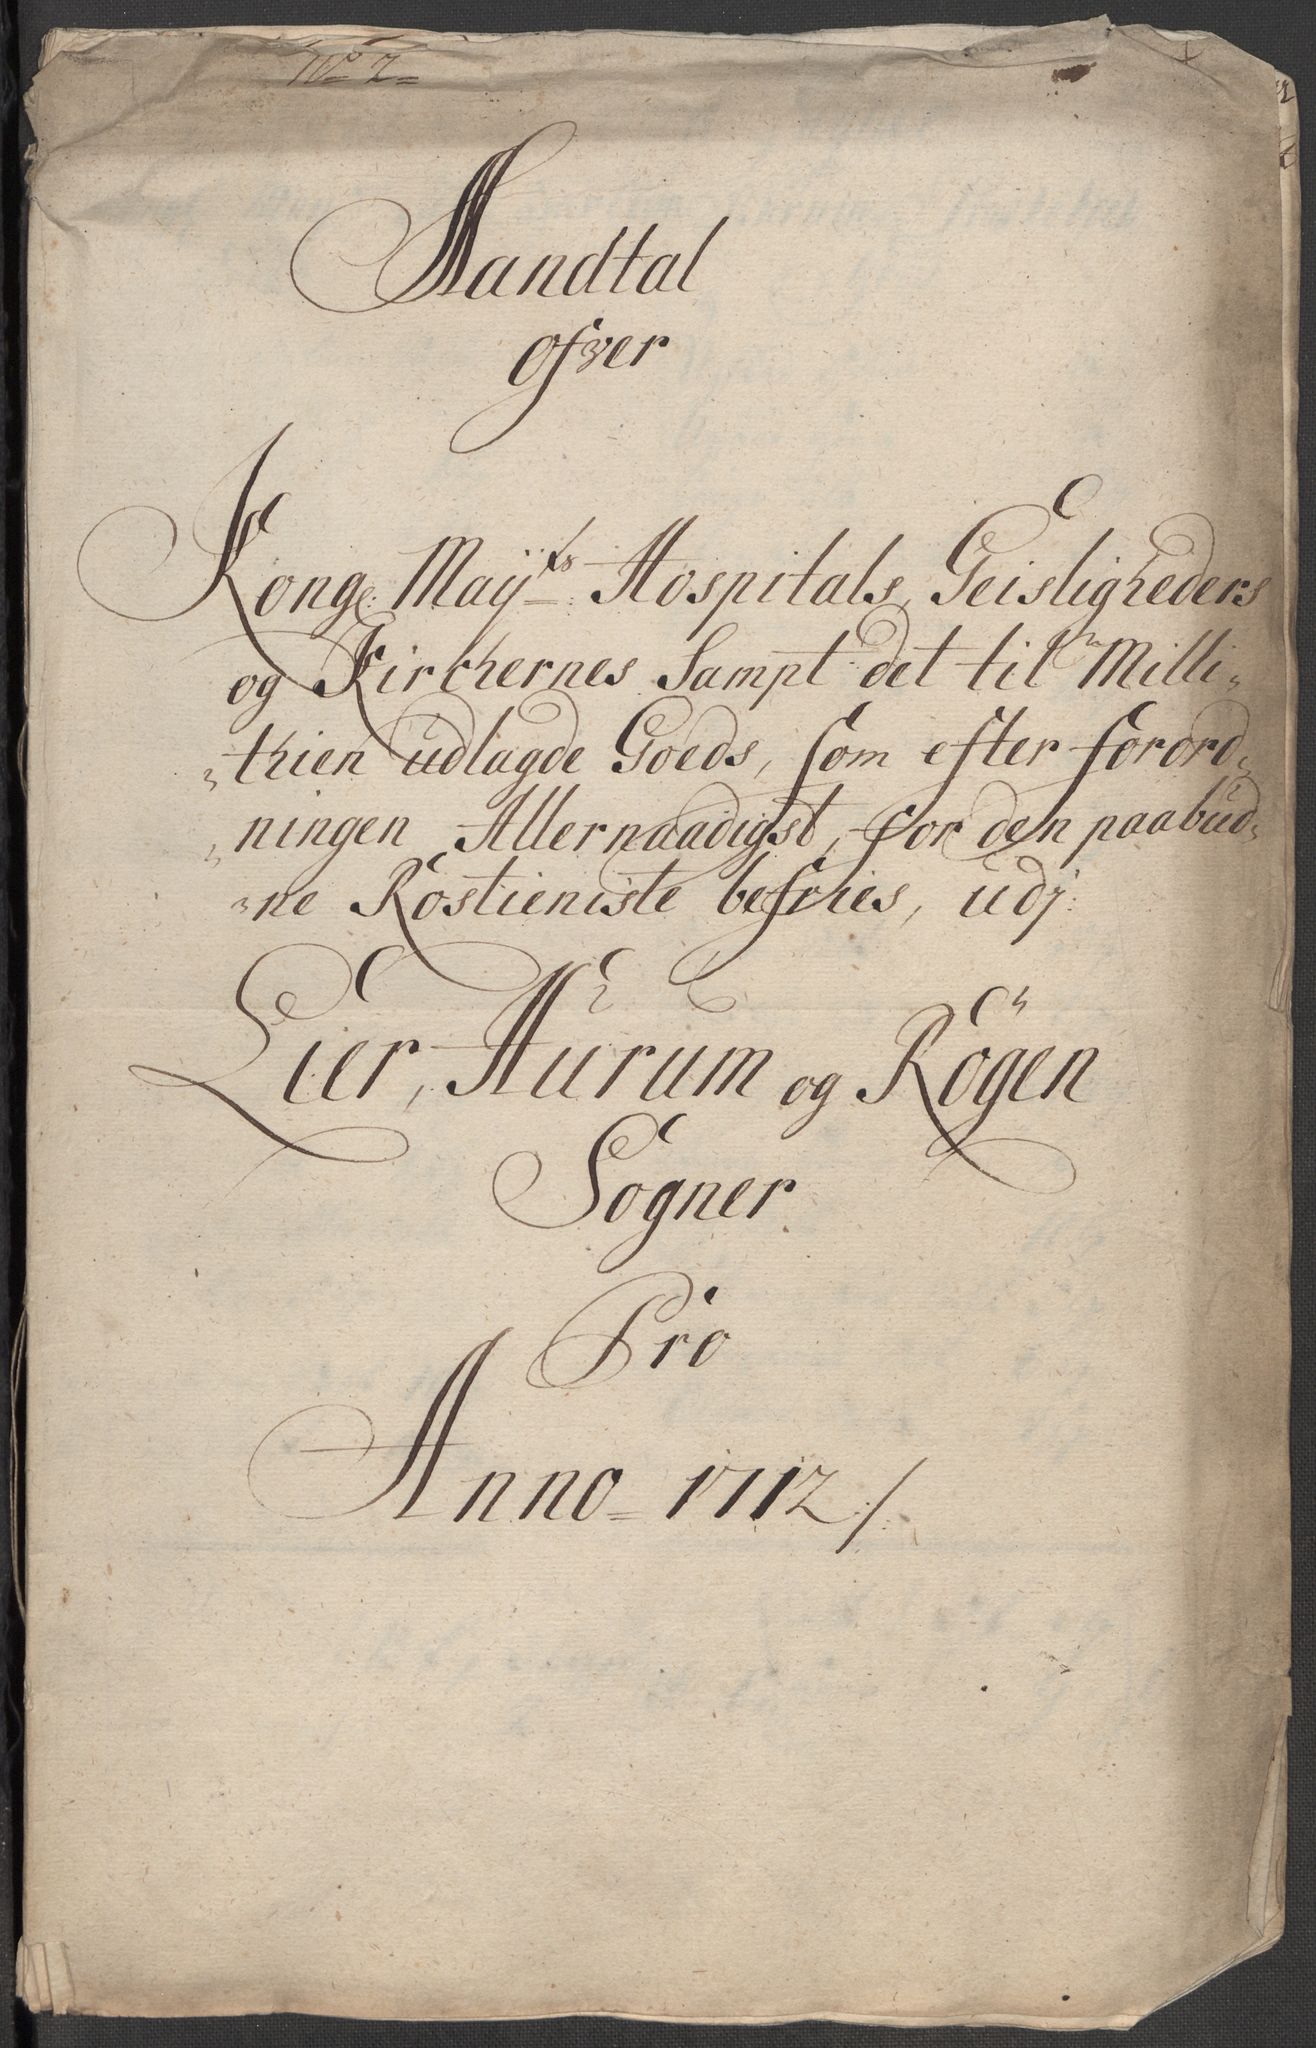 No 2
Mandtal
ofver
Kongl: Mayts: Hospitals, Geisligheders
og Kirchernes Sampt det til Milli-
thien udlagde Goeds, som efter forord-
ningen Allernaadigst, for den paabud-
ne Rostieniste befries, udj:
Lier, Hurum og Røgen
Sogner
Pro
Anno 1712 /